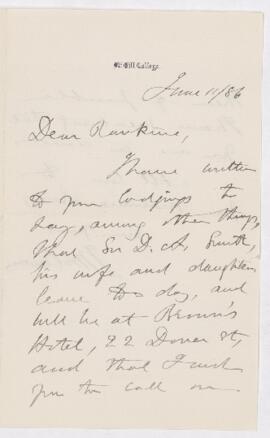 McGill College.
June 11/86
Dear Rankine,
I have written
to your lodgings to
say, among other things,
that Sir D. A. Smith,
his wife and daughter
leave to day, and
will be at Brown's
Hotel, 22 Dover St,
and that I wish
you to call on